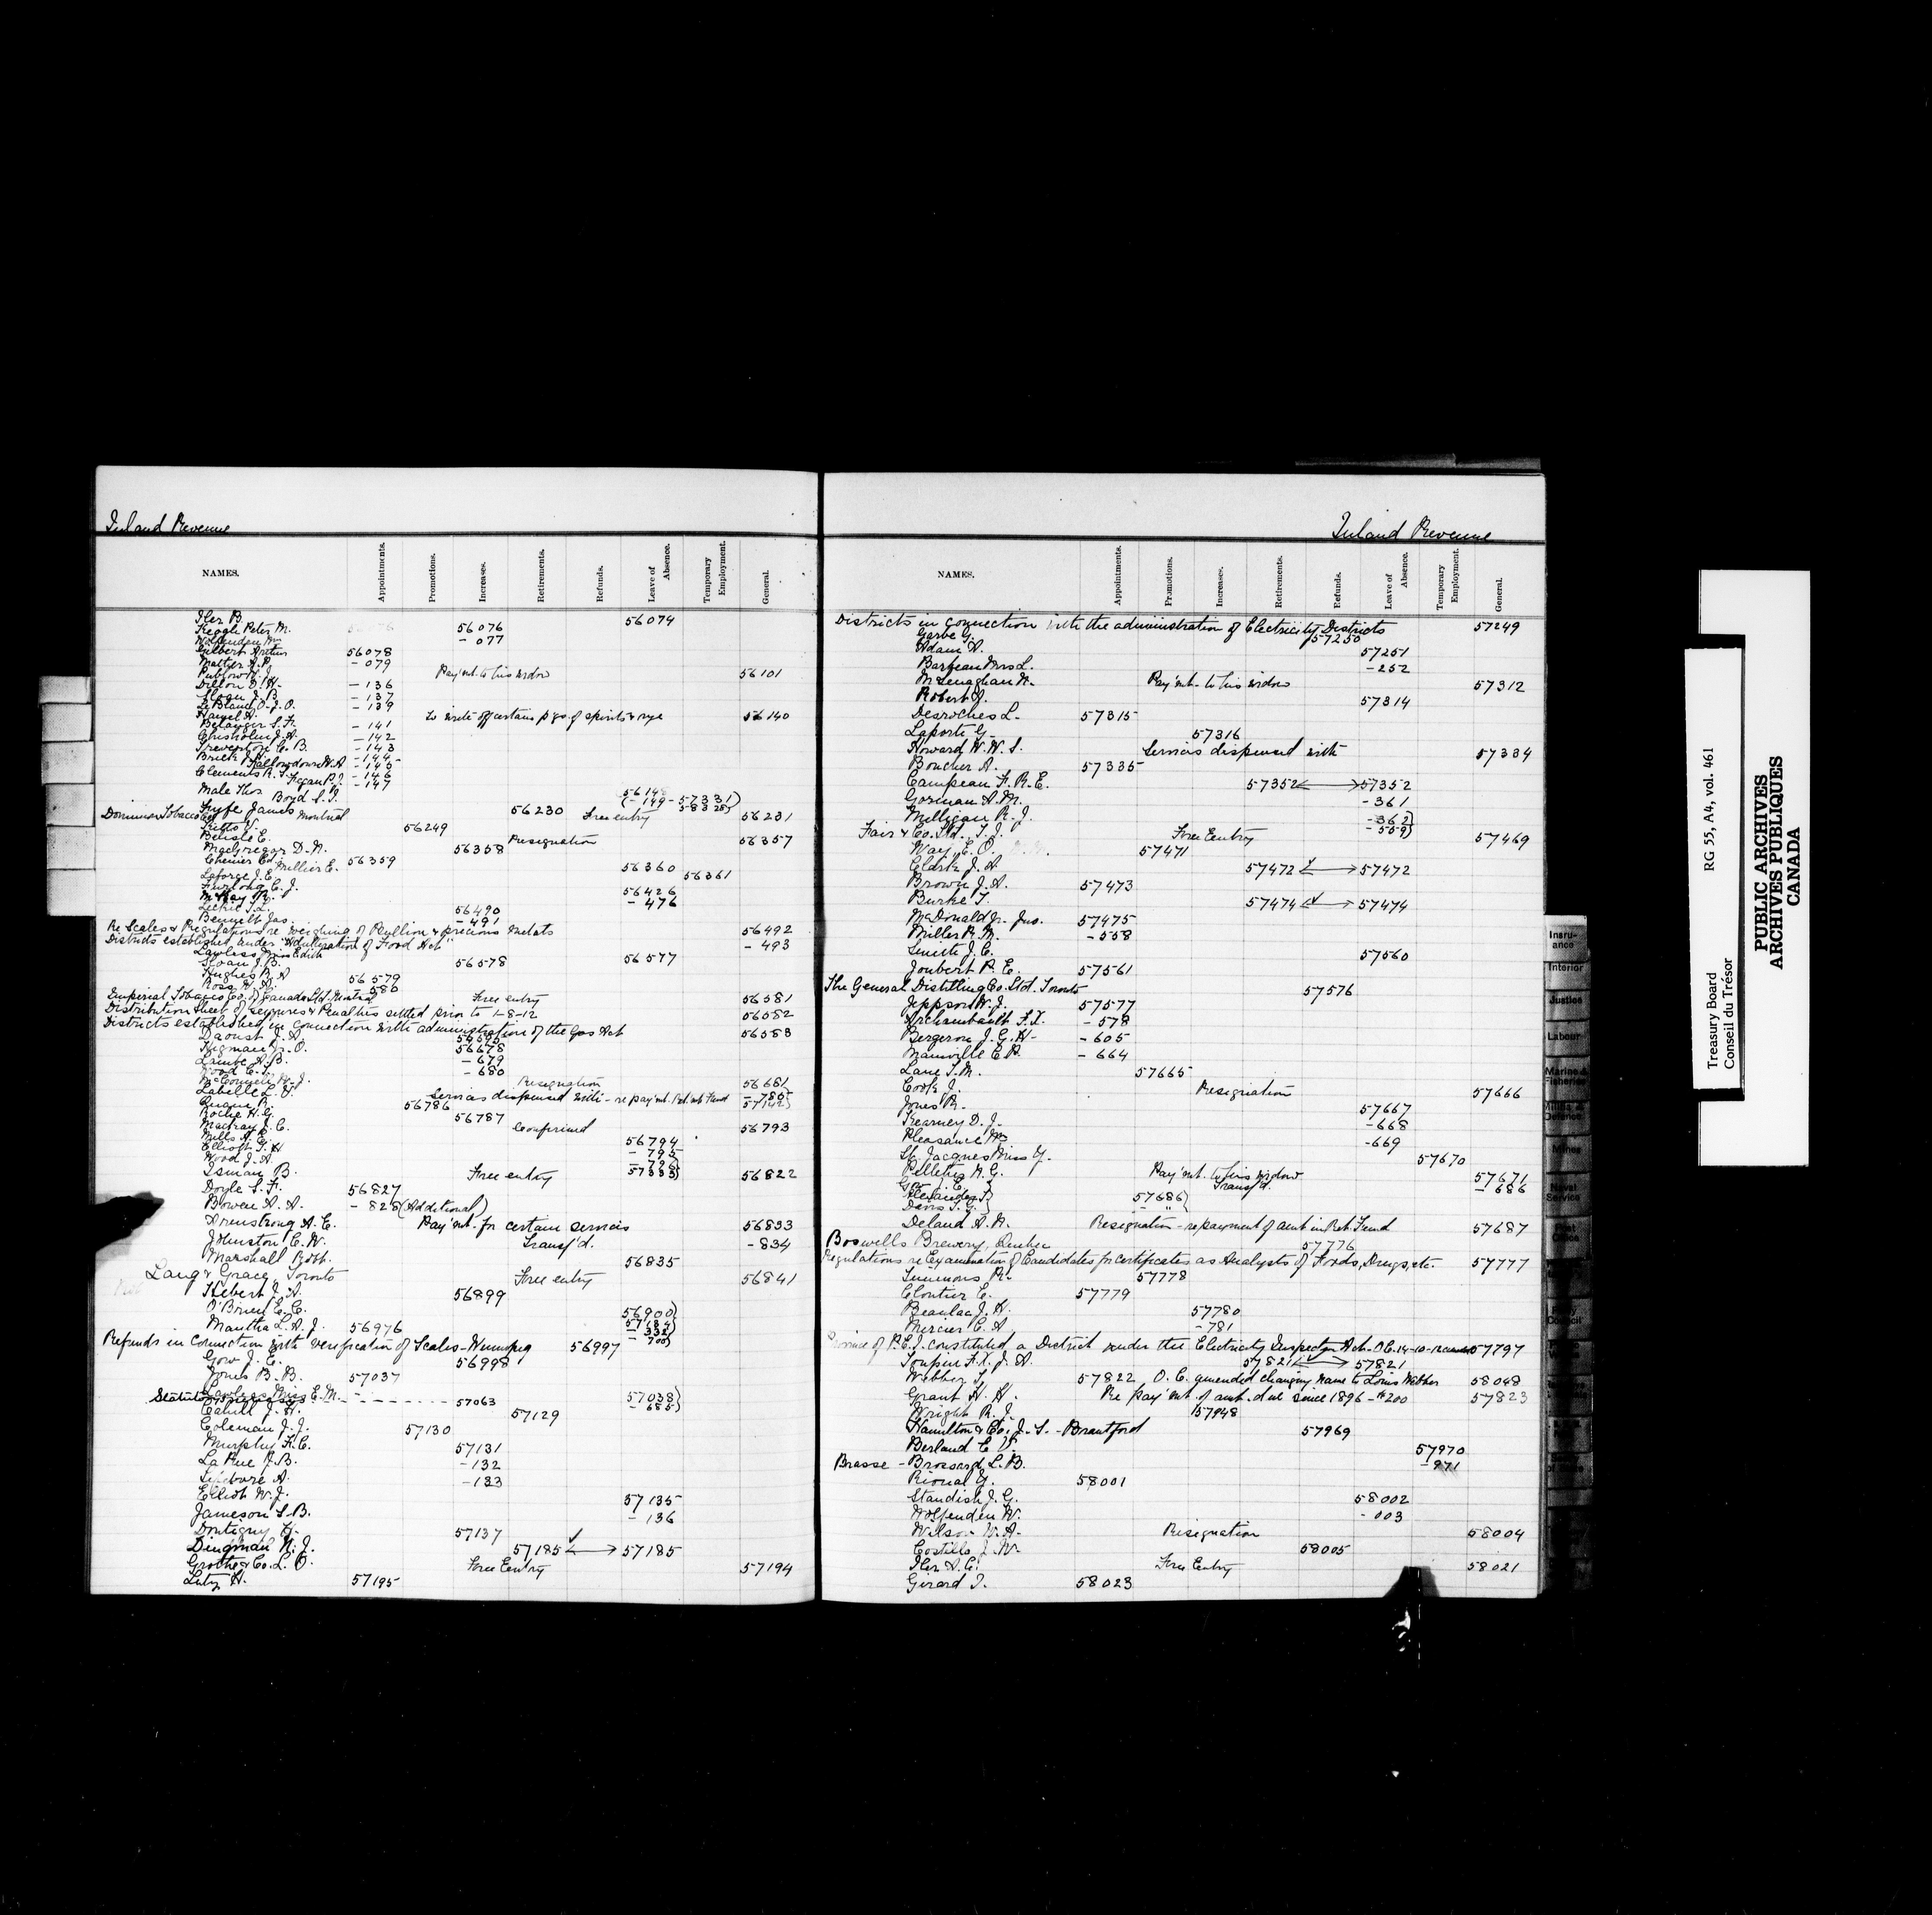 Inland Revenue
NAMES. Appointments. Promotions. Increases. Retirements. Refunds. Leave of Absence. Temporary Employment. General.
Iler B. 56074
Keogh Peter M. 56076
Wolfenden Wm - 077
Gilbert Arthur 56078
- 079
Pay'mt. to his widow 56101
Dillon - 136
Sloan J. B. - 137
LeBland O. J. O. - 139
Hamel A. to write off certain pgs of spirits & rye 56140
Belanger S. F. - 141
Chisholm J. A. - 142
Treverton C. B. - 143
Brick J. Hallowdown W. A. - 144 - 145
Clements R. J. Fegan P. J. - 146
Male Thos - 147
Boyd S. I. 56148
Fyfe James (- 149 - 57331)
Dominion Tobacco Co. Montreal 56230 Free entry 56231
56249
Belisle E. Resignation 56357
MacGregor D. M. 56358
Chenier Ed. Millier E. 56359
Laforge J. E. 56360 56361
Furlong C. J. 56426
McKay - 476
Leckie T. L. 56490
Bennett Jas. - 491
Re Scales & Regulations re weighing of Bullion & precious metals 56492
Districts established under "Adulteration of Food Act" - 493
Lawless Miss Edith 56577
Sloan J. B. 56578
Hughes R. A. 56579
Ross H. A. - 580
Imperial Tobacco Co. of Canada Ltd. Montreal Free entry 56581
Distribution sheet of seizures & Penalties settled prior to 1-8-12 56582
Districts established in connection with administration of the Gas Act 56583
Daoust J. A.
Higman Jr. O. 56678
Lambe A. B. - 679
Wood C. T. - 680
McConnell H. J. Resignation 56681
Labelle L. V. Services dispensed with - repay'mt. Ret'mt Fund - 785
Quain R. 56786
Roche H. G. 56787
Mackay J. C. Confirmed 56793
Mills A. E. 56794
Elliott T. H - 795
Wood J. A. - 796
57333)
Isman B. Free entry 56822
Doyle S. F. 56827
Bowen A. A. - 828 (Additional)
Armstrong A. E. Pay'mt. for certain services 56833
Johnston C. W. Transf'd. - 834
Marshall Robt. 56835
Lang & Gracey, Toronto Free entry 56841
Hebert J. A. 56899
O'Brien E. C. 56900)
57184
- 332
- 700)
Mantha L. A. J. 56976
Refunds in connection with verification of Scales - Winnipeg 56997
Gow J. E. 56998
Jones B. B. 57037
Lawless Miss E. M. 57038)
- 685)
Statutory increases - - - 57063
Cahill J. H. 57129
Coleman J. J. 57130
Murphy F. C. 57131
La Rue J. B. - 132
Lefebvre A. - 133
Elliot W. J. 57135
Jameson S. B. - 136
Dontigny H. 57137
Dingman N. J. 57185 57185
Grothe & Co. L. O. Free Entry 57194
Lutz H. 57195
Inland Revenue
NAMES. Appointments. Promotions. Increases. Retirements. Refunds. Leave of Absence. Temporary Employment. General.
Districts in connection with the administration of Electricity Districts 57249
Garbe G. 57250
Adam A. 57251
Barbeau Mrs L. - 252
McLenaghan N. Pay'mt. to his widow 57312
Robert J. 57314
Desroches L. 57315
Laporte G. 57316
Howard W. W. S. Services dispensed with 57334
Boucher A. 57335
Campeau F. R. E. 57352 57352
Gorman A. M. - 361
Milligan R. J. - 362)
- 559)
Fair & Co. Ltd., T. J. Free Entry 57469
Way, E. O. 57471
Clark J. A. 57472 57472
Brown J. A. 57473
Burke T. 57474 57474
McDonald Jr. Jno. 57475
Miller R. M. - 558
Smith J. C. 57560
Joubert P. E. 57561
The General Distilling Co. Ltd. Toronto 57576
Jeppson W. J. 57577
Archambault F. X. - 578
Bergeron J. G. H. - 605
Mainville E. P. - 664
Lane T. M. 57665
Cook J. Resignation 57666
Jones R. 57667
Kearney D. J. - 668
Pleasance Wm - 669
St. Jacques Miss Y. 57670
Pelletier N. G. Pay'mt. to his widow 57671
Gow J. E. Transf'd. - 686
Alexander T.} 57686}
Davis T. G.} - "
Deland A. N. Resignation - repayment of amt in Ret. Fund 57687
Boswells Brewery, Quebec 57776
Regulations re Examination of Candidates for certificates as Analysts of Foods, Drugs, etc. 57777
Simmons R. 57778
Cloutier E. 57779
Beaulac J. H. 57780
Mercier C. A. - 781
Province of P.E.I. constituted a District under the Electricity Inspection Act - OC. 14-10-12 57797
Toupin F. X. J. A. 57821 57821
Webber T. 57822 O. C. amended changing name to Louis Webber 58048
Grant H. H. Re pay'mt of amt. due since 1896 - $200 57823
Wright R. J. 57948
Hamilton & Co., J. S. - Brantford 57969
Berland E. 57970
Brasse - Brossard, L. B. - 971
Rional G. 58001
Standish J. G. 58002
Wolfenden W. - 003
Watson W. A. Resignation 58004
Costello J. W. 58005
Iler A. C. Free Entry 58021
Girard T. 58023
Insurance
Interior
Justice
Labour
Marine & Fisheries
Militia & Defence
Mines
Naval Service
Post Office
Treasury Board RG 55, A4, vol. 461
Conseil du Trésor
PUBLIC ARCHIVES
ARCHIVES PUBLIQUES
CANADA